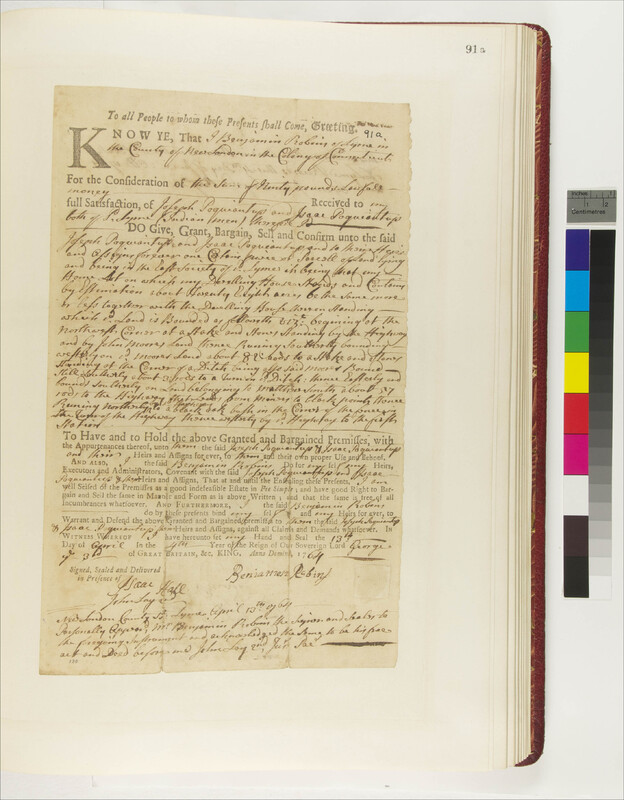 91a
To all People to whom these Presents shall Come, Greeting.
91a
KNOW YE, That I Benjamin Robins of Lyme in
the County of New London in the Colony of Connecticut
For the Consideration of the Sum of Ninty pounds Lawfull
money Received to my
full Satisfaction, of Joseph Poquiantup and Isaac Poquiantup
both of Lyme (Indian men) thereof
DO Give, Grant, Bargain, Sell and Confirm unto the said
Joseph Poquiantup and Isaac Poquiantup and to their Heirs
and Assigns forever one Certain peace or parcell of Land lying
and being in the East Society of Lyme it being that my
in which my Dwelling House Stands and Contains
by Estimation about Twenty Eight acres be the same more
or less together with the Dwelling House thereon Standing
which Land is Bounded as followeth begining at the
Northwest Corner at a Stake and Stones Standing by the Highway
and by John Moores Land thence Runing Southerly bounding
westerly on Moores Land about 82 rods to a Stake and Stones
Standing at the Corner of a Ditch being
Still Southerly about rods to a Turn in Ditch thence Easterly
bound Southerly on Land belonging to Smith about 37
rods to the Highway that leads from to Black point thence
Runing Northerly to a black oak bush in the Corner of the fence
the Highway thence westerly by Highway to the first
Station
To Have and to Hold the above Granted and Bargained Premisses, with
the Appurtenances thereof, unto them the said Joseph Poquiantup & Isaac Poquiantup
and their Heirs and Assigns for ever, to their own proper Use and Behoof.
AND ALSO, I the said Benjamin Robins Do for my self my Heirs,
Executors and Administrators, Covenant with the said Joseph Poquiantup and Isaac
Poquiantup Heirs and Assigns, That at and until the Ensealing these Presents, I am
well Seised of the Premisses as a good indefeasible Estate in Fee Simple; and have good Right to Bargain
and Sell the same in Manner and Form as is above Written; and that the same is free of all
Incumbrances whatsoever. AND FURTHERMORE, I the said Benjamin Robins
do by these presents bind my self and my Heirs for ever, to
Warrant and Defend the above Granted and Bargained Premisses to them the said Joseph Poquiantup
& Isaac Poquiantup Heirs and Assigns, against all Claims and Demands whatsoever. In
WITNESS WHEREOF I have hereunto set my Hand and Seal the 13th
Day of April In the 4th Year of the Reign of Our Sovereign Lord George
ye 3d of GREAT BRITAIN, &c. KING, Anno Domini, 1764
Signed, Sealed and Delivered
in Presence of
Benjamin Robins
Isaac Hall
John Lay
New London County Ss Lyme April 13th 1764
Personally Appeared Mr Benjamin Robins the Signer and Sealer to
the foregoing Instrument and acknowledged the Same to be his free
act and Deed before me John Lay Just Pac
Inches
Centimetres